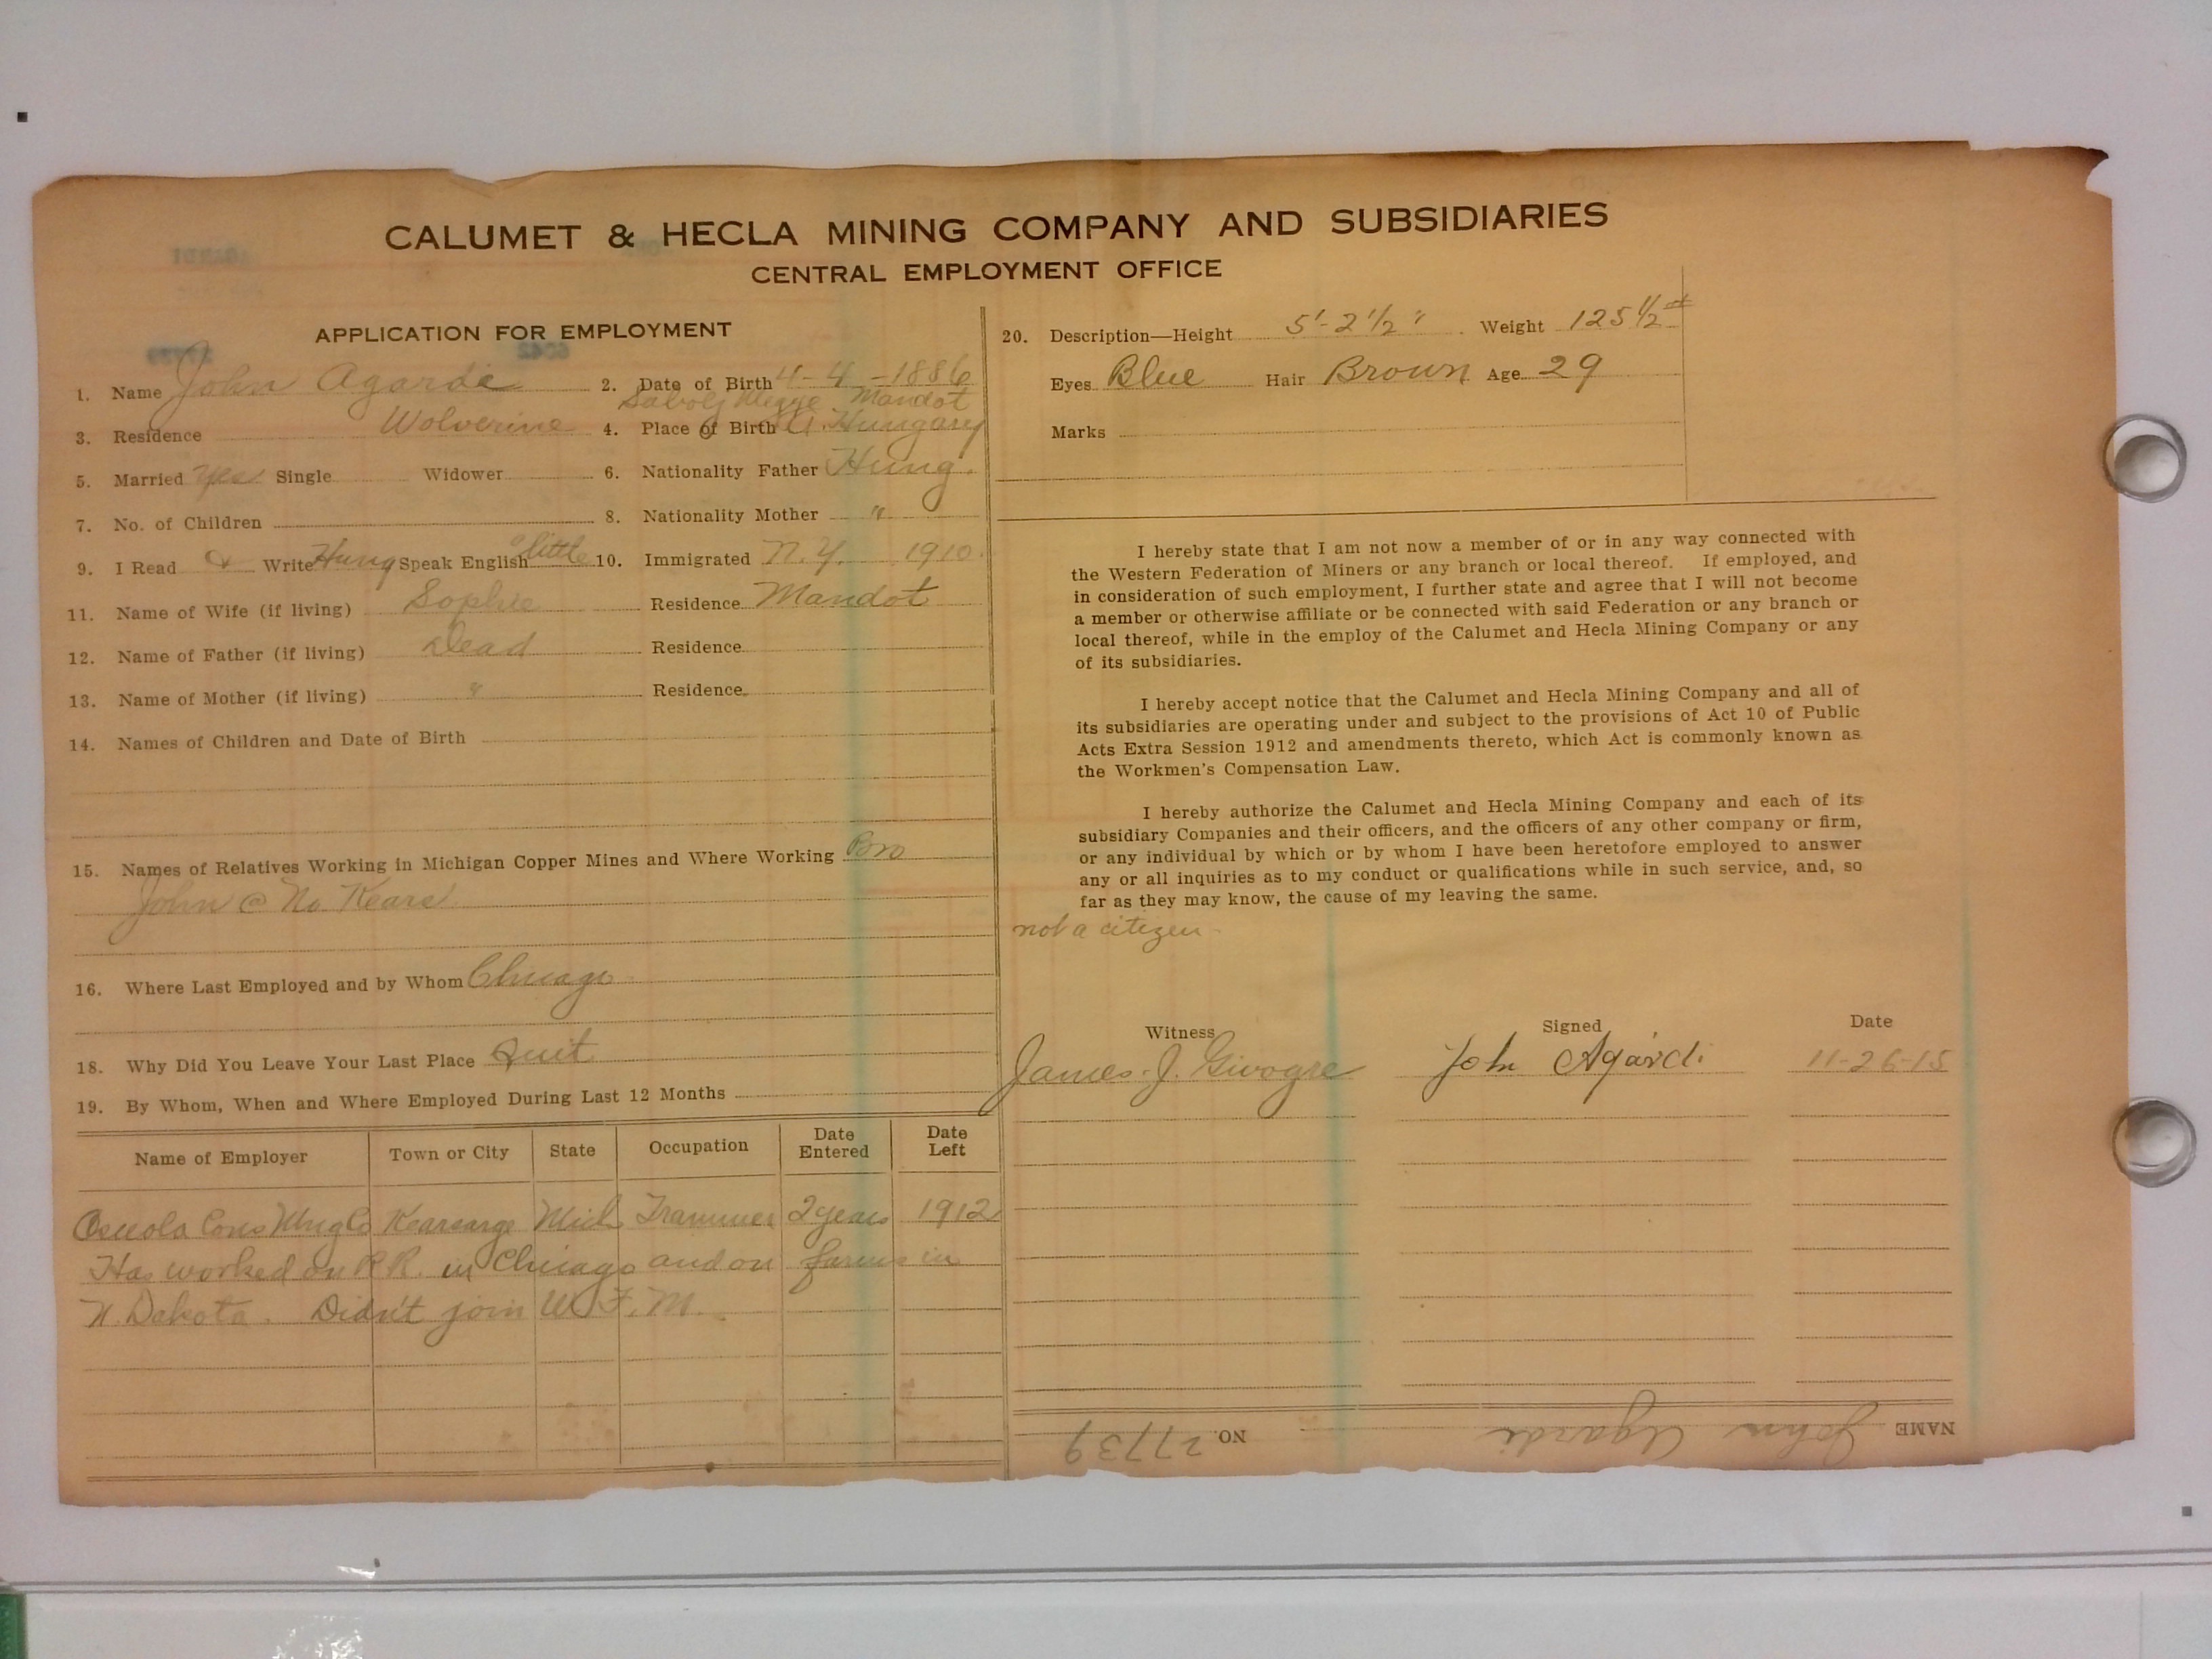 CALUMET & HECLA MINING COMPANY AND SUBSIDIARIES
CENTRAL EMPLOYMENT OFFICE
APPLICATION FOR EMPLOYMENT
1. Name John Agardi 2. Date of Birth 4-4-1886
Mandot
3. Residence Wolverine 4. Place of Birth A. Hungary
5. Married Yes Single Widower 6. Nationality Father Hung.
7. No. of Children 8. Nationality Mother "
9. I Read & Write Hung Speak English little 10. Immigrated N.Y. 1910
11. Name of Wife (if living) Sophie Residence Mandot
12. Name of Father (if living) Dead Residence
13. Name of Mother (if living) " Residence
14. Names of Children and Date of Birth
15. Names of Relatives Working in Michigan Copper Mines and Where Working Bro
John @ No Kears
16. Where Last Employed and by Whom Chicago
18. Why Did You Leave Your Last Place Quit
19. By Whom, When and Where Employed During Last 12 Months
Name of Employer Town or City State Occupation Date Entered Date Left
Osceola Cons Mng Co Kearsarge Mich Trammer 2 years 1912
Has worked on R.R. in Chicago and on farms in
N. Dakota. Didn't join W.F.M.
20. Description—Height 5'-2 1/2" Weight 125 1/2 #
Eyes Blue Hair Brown Age 29
Marks
I hereby state that I am not now a member of or in any way connected with
the Western Federation of Miners or any branch or local thereof. If employed, and
in consideration of such employment, I further state and agree that I will not become
a member or otherwise affiliate or be connected with said Federation or any branch or
local thereof, while in the employ of the Calumet and Hecla Mining Company or any
of its subsidiaries.
I hereby accept notice that the Calumet and Hecla Mining Company and all of
its subsidiaries are operating under and subject to the provisions of Act 10 of Public
Acts Extra Session 1912 and amendments thereto, which Act is commonly known as
the Workmen's Compensation Law.
I hereby authorize the Calumet and Hecla Mining Company and each of its
subsidiary Companies and their officers, and the officers of any other company or firm,
or any individual by which or by whom I have been heretofore employed to answer
any or all inquiries as to my conduct or qualifications while in such service, and, so
far as they may know, the cause of my leaving the same.
not a citizen
Witness Signed Date
James J. John Agardi 11-26-15
NAME John Agardi NO. 27739